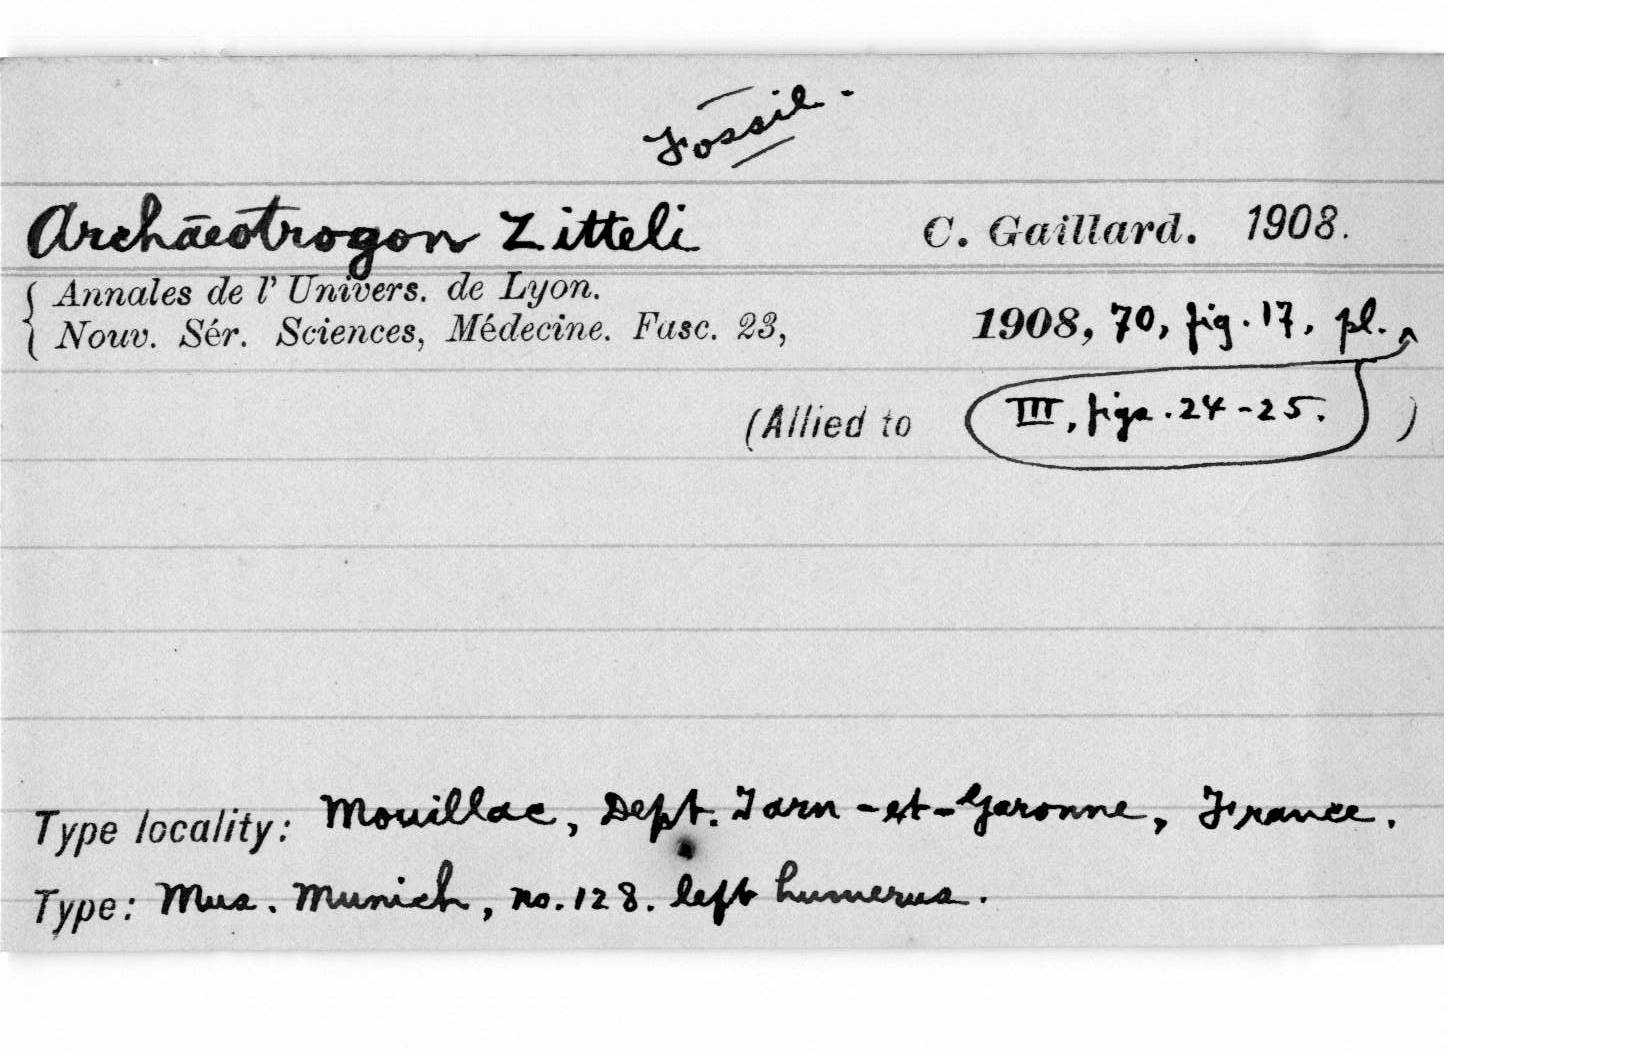 Fossil.
Archaeotrogon Zitteli C. Gaillard. 1908.
Annales de l' Univers. de Lyon.
Nouv. Sér. Sciences, Médecine. Fasc. 23, 1908, 70, fig. 17, pl.
(Allied to III, figs. 24-25. )
Type locality: Mouillac, Dept. Tarn-et-Garonne, France.
Type: Mus. Munich, no. 128. left humerus.